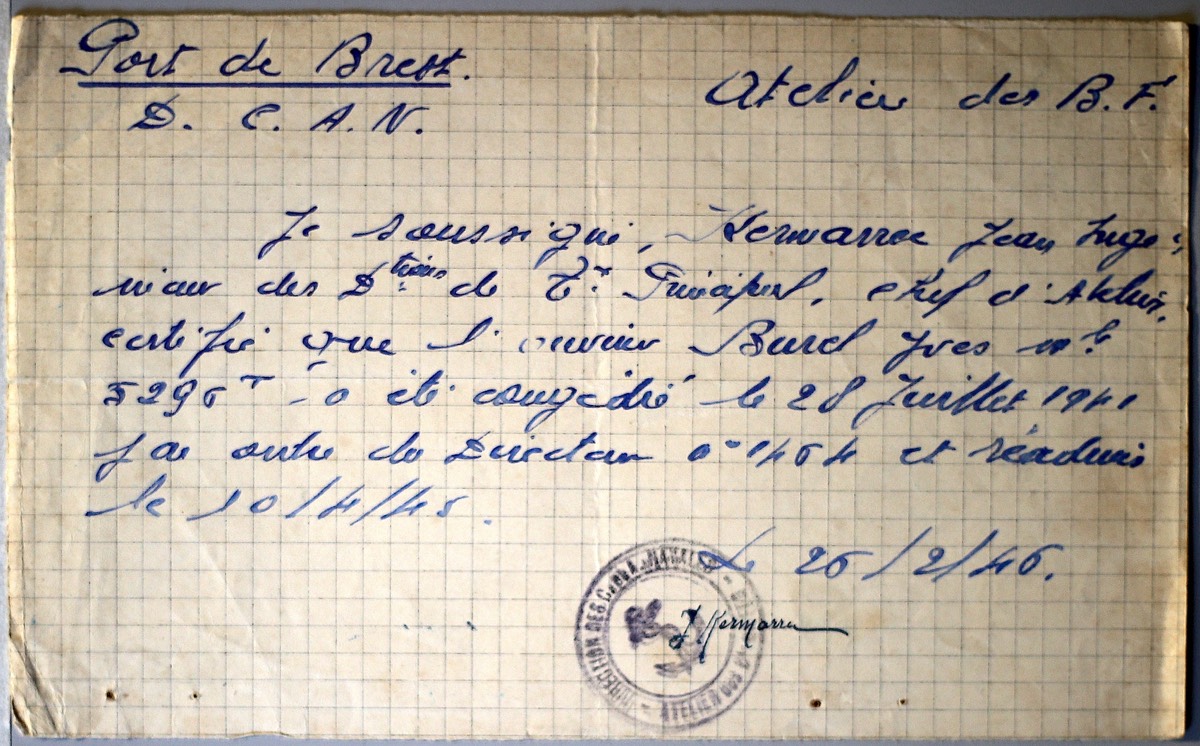 Port de Brest.
Atelier des B. F.
D. C. A. N.
Je soussigné, Kermarrec Jean Ingé-
nieur des D.tions de Tx. Principal, chef d'Atelier,
certifie que l'ouvrier Burel Yves mle
5296 T a été congédié le 28 Juillet 1941
par ordre du Directeur n° 1464 et réadmis
le 10/4/45.
Le 26/2/46.
J. Kermarrec
DIRECTION DES C. NAVALES
ATELIER DES